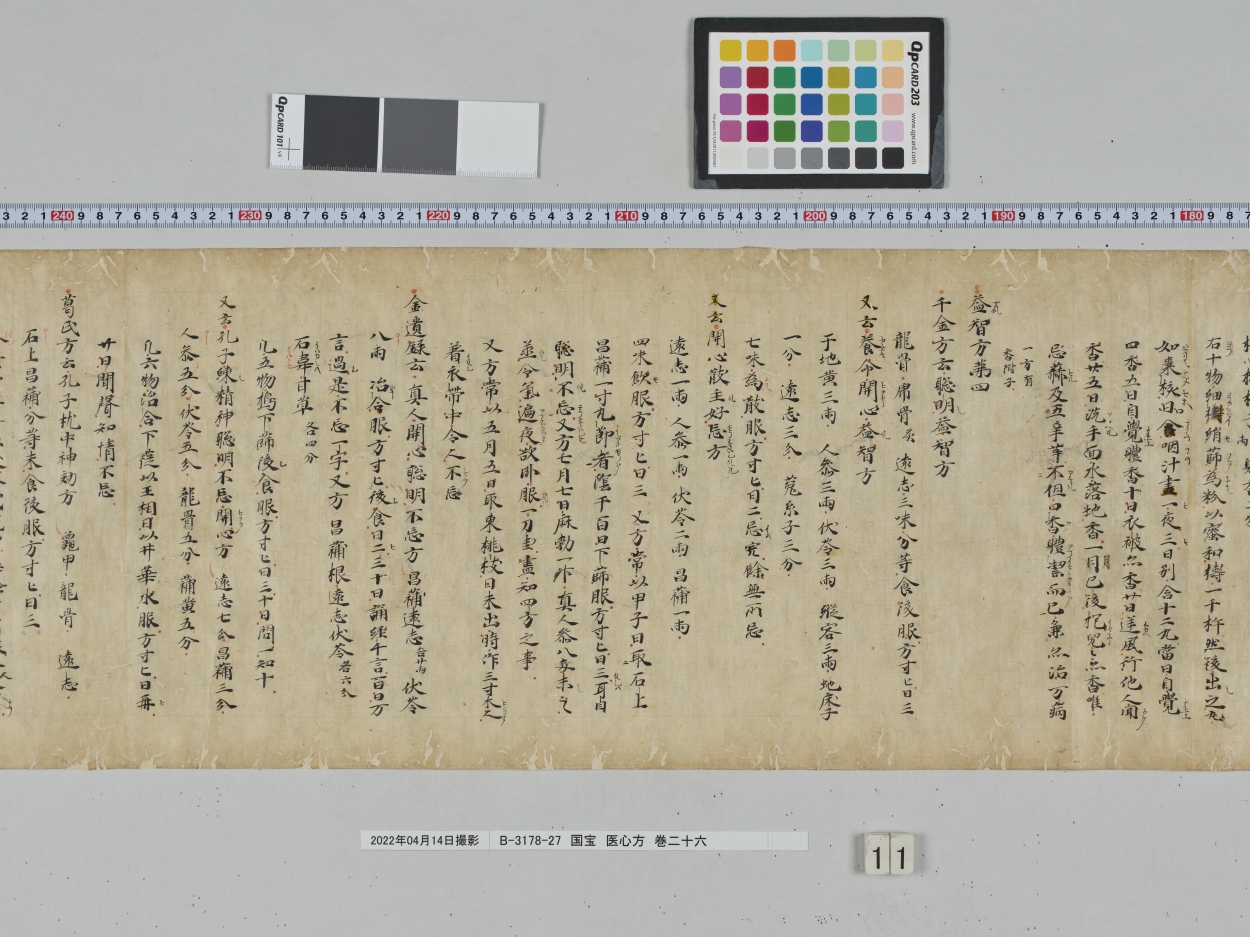 QPCARD 101 v4
QPCARD 203
www.qpcard.com
3 2 1 240 9 8 7 6 5 4 3 2 1 230 9 8 7 6 5 4 3 2 1 220 9 8 7 6 5 4 3 2 1 210 9 8 7 6 5 4 3 2 1 200 9 8 7 6 5 4 3 2 1 190 9 8 7 6 5 4 3 2 1 180 9 8 7
右十物細擣絹篩為粉以蜜和擣一千杵然後出之丸
如棗核口含咽汁盡一夜三日別含十二丸當日自覺
口香五日自覺體香十日衣被亦香廿日逆風行他人聞
香廿五日洗手面水落地香一月已後抱兒亦香唯
忌蒜及五辛等不但口香體潔而已兼亦治万病
一方有
香附子
益智方第四
千金方云聡明益智方
龍骨 虎骨炙 遠志三味分等食後服方寸匕日三
又云養命開心益智方
干地黄三兩 人参三兩 伏苓三兩 縱容三兩 地床子
一分 遠志三分 菟糸子三分
七味為散服方寸匕日二忌宍餘無所忌
又云開心散主好忘方
遠志一兩 人参一兩 伏苓二兩 昌蒲一兩
四味飲服方寸匕日三 又方常以甲子日取石上
昌蒲一寸九節者陰干百日下篩服方寸匕日三耳目
聡明不忘又方七月七日麻勃一升真人参八安末之
蒸令氣遍夜欲卧服一刀圭盡知四方之事
又方常以五月五日取東桃枝日未出時作三寸木人
著衣帶中令人不忘
金遺録云真人開心聡明不忘方 昌蒲遠志各廿兩 伏苓
八兩 冶合服方寸匕後食日二三十日誦經千言百日万
言過是不忘一字又方 昌蒲根遠志伏苓各六分
石韋甘草各四分
凡五物搗下篩後食服方寸匕日三十日問一知十
又云孔子練精神聡明不忘開心方 遠志七分昌蒲三分
人参五分伏苓五分 龍骨五分 蒲黄五分
凡六物治合下篩以王相日以井華水服方寸匕日再
廿日聞聲知情不忘
葛氏方云孔子枕中神効方 龜甲 龍骨 遠志
石上昌蒲分等末食後服方寸匕日三
2022年04月14日撮影 B-3178-27 国宝 医心方 巻二十六
11